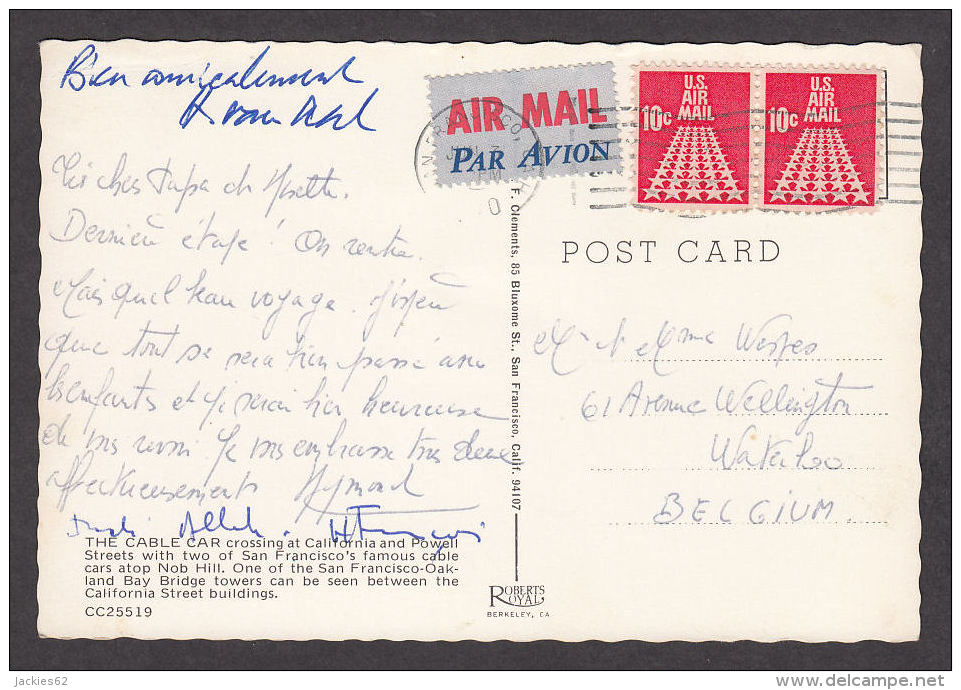 Bien amicalement
AIR MAIL
PAR AVION
U.S.
AIR
MAIL
10c
U.S.
AIR
MAIL
10c
Papa et
Dernière étape ! On rentre.
Mais quel beau voyage. J'espère
que tout se sera bien passé avec
les enfants et je serai bien heureuse
de vous revoir. Je vous embrasse tous deux
affectueusement
POST CARD
F. Clements, 85 Bluxome St., San Francisco, Calif. 94107
Mr et Mme
61 Avenue Wellington
Waterloo
BELGIUM.
THE CABLE CAR crossing at California and Powell
Streets with two of San Francisco's famous cable
cars atop Nob Hill. One of the San Francisco-Oak-
land Bay Bridge towers can be seen between the
California Street buildings.
CC25519
ROBERTS
ROYAL
BERKELEY, CA
jackies62
www.delcampe.net